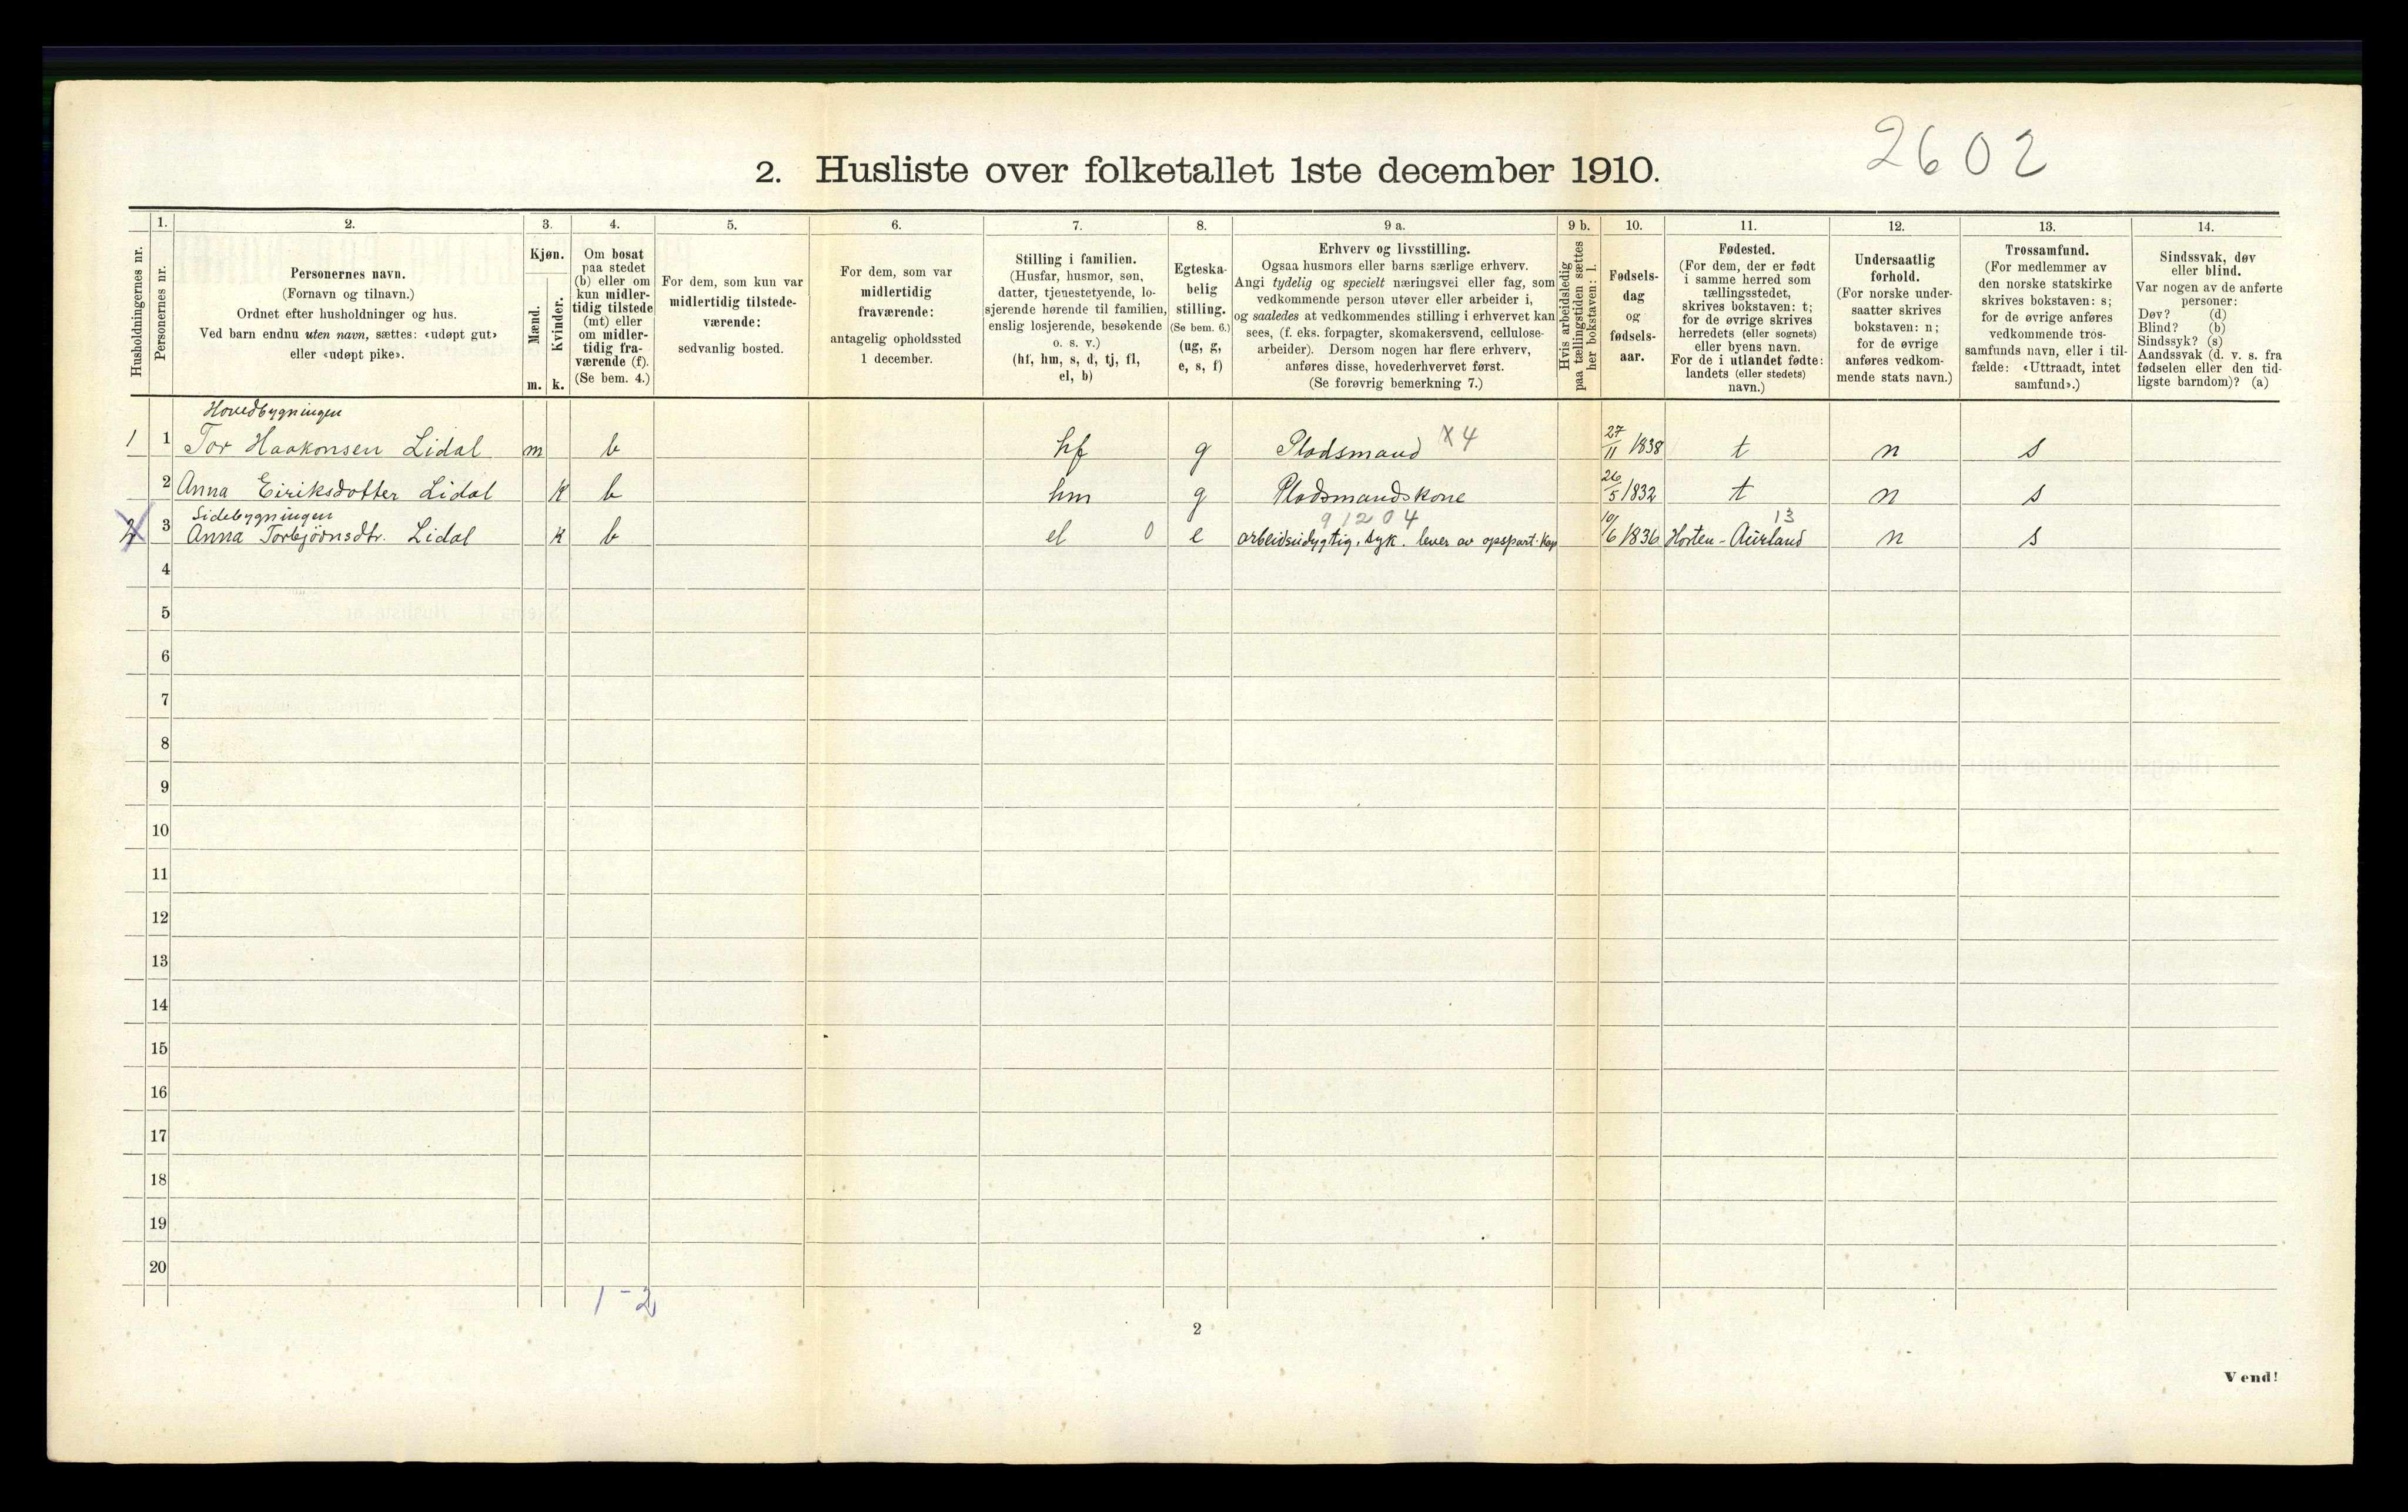 2602
2. Husliste over folketallet 1ste december 1910.
Husholdningernes nr.
1.
Personernes nr.
2.
Personernes navn.
(Fornavn og tilnavn.)
Ordnet efter husholdninger og hus.
Ved barn endnu uten navn, sættes: «udøpt gut»
eller «udøpt pike».
3.
Kjøn.
Mænd.
Kvinder.
m. k.
4.
Om bosat
paa stedet
(b) eller om
kun midler-
tidig tilstede
(mt) eller
om midler-
tidig fra-
værende (f).
(Se bem. 4.)
5.
For dem, som kun var
midlertidig tilstede-
værende:
sedvanlig bosted.
6.
For dem, som var
midlertidig
fraværende:
antagelig opholdssted
1 december.
7.
Stilling i familien.
(Husfar, husmor, søn,
datter, tjenestetyende, lo-
sjerende hørende til familien,
enslig losjerende, besøkende
o. s. v.)
(hf, hm, s, d, tj, fl,
el, b)
8.
Egteska-
belig
stilling.
(Se bem. 6.)
(ug, g,
e, s, f)
9 a.
Erhverv og livsstilling.
Ogsaa husmors eller barns særlige erhverv.
Angi tydelig og specielt næringsvei eller fag, som
vedkommende person utøver eller arbeider i,
og saaledes at vedkommendes stilling i erhvervet kan
sees, (f. eks. forpagter, skomakersvend, cellulose-
arbeider). Dersom nogen har flere erhverv,
anføres disse, hovederhvervet først.
(Se forøvrig bemerkning 7.)
9 b.
Hvis arbeidsledig
paa tællingstiden sættes
her bokstaven: l.
10.
Fødsels-
dag
og
fødsels-
aar.
11.
Fødested.
(For dem, der er født
i samme herred som
tællingsstedet,
skrives bokstaven: t;
for de øvrige skrives
herredets (eller sognets)
eller byens navn.
For de i utlandet fødte:
landets (eller stedets)
navn.)
12.
Undersaatlig
forhold.
(For norske under-
saatter skrives
bokstaven: n;
for de øvrige
anføres vedkom-
mende stats navn.)
13.
Trossamfund.
(For medlemmer av
den norske statskirke
skrives bokstaven: s;
for de øvrige anføres
vedkommende tros-
samfunds navn, eller i til-
fælde: «Uttraadt, intet
samfund».)
14.
Sindssvak, døv
eller blind.
Var nogen av de anførte
personer:
Døv? (d)
Blind? (b)
Sindssyk? (s)
Aandssvak (d. v. s. fra
fødselen eller den tid-
ligste barndom)? (a)
Hovedbygningen
1 1 Tor Haakonsen Lidal m b hf g Pladsmand X4 27/11 1838 t n s
2 Anna Eiriksdotter Lidal k b hm g Pladsmandskone 26/5 1832 t n s
Sidebygningen 91204 13
2 3 Anna Torbjörnsdtr. Lidal k b el 0 e arbeidsudygtig, syk. lever av opspart. Kap 10/6 1836 Horten - Aurland n s
4
5
6
7
8
9
10
11
12
13
14
15
16
17
18
19
20
1-2
2
Vend!